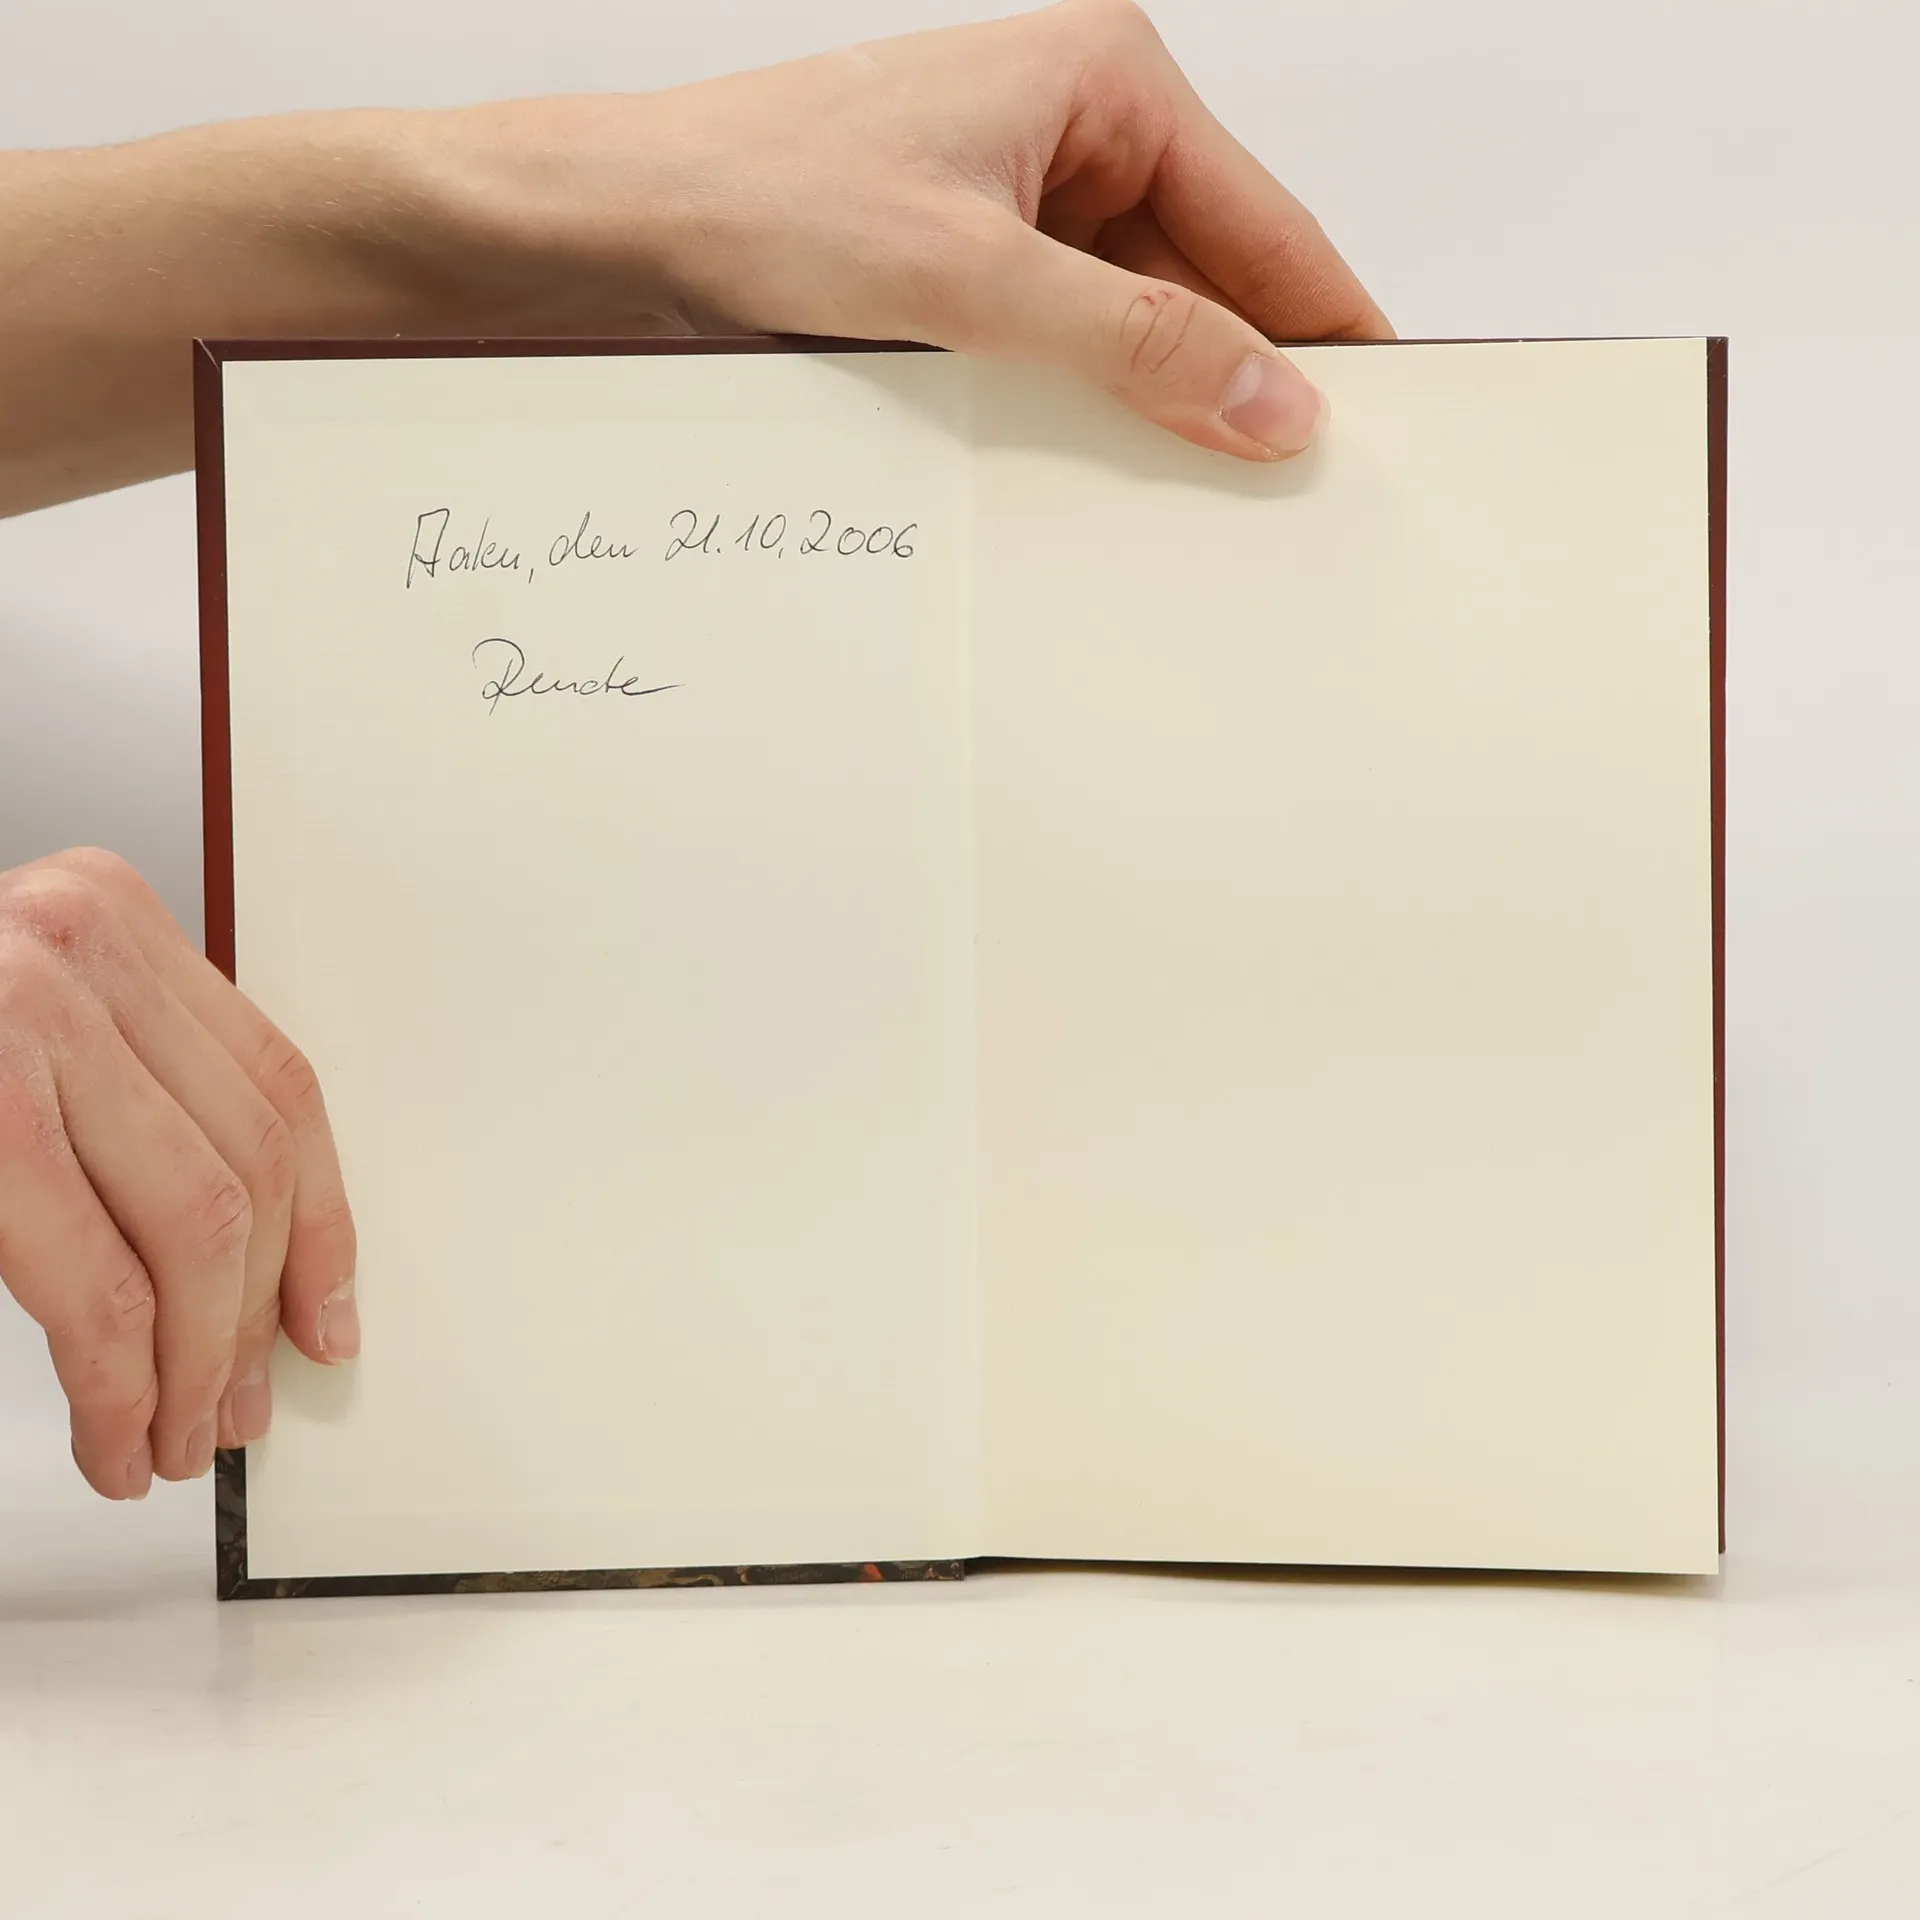 Aken, den 21.10.2006
Renate